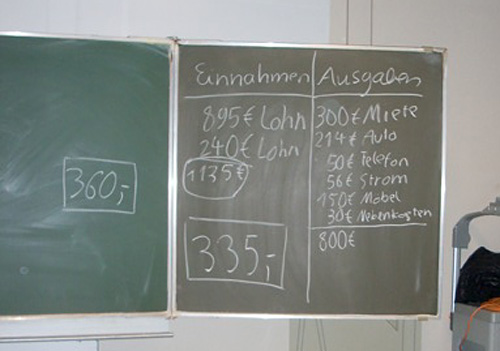 360,-
Einnahmen
895€ Lohn
240€ Lohn
1135€
335,-
Ausgaben
300€ Miete
214€ Auto
50€ Telefon
56€ Strom
150€ Möbel
30€ Nebenkosten
800€